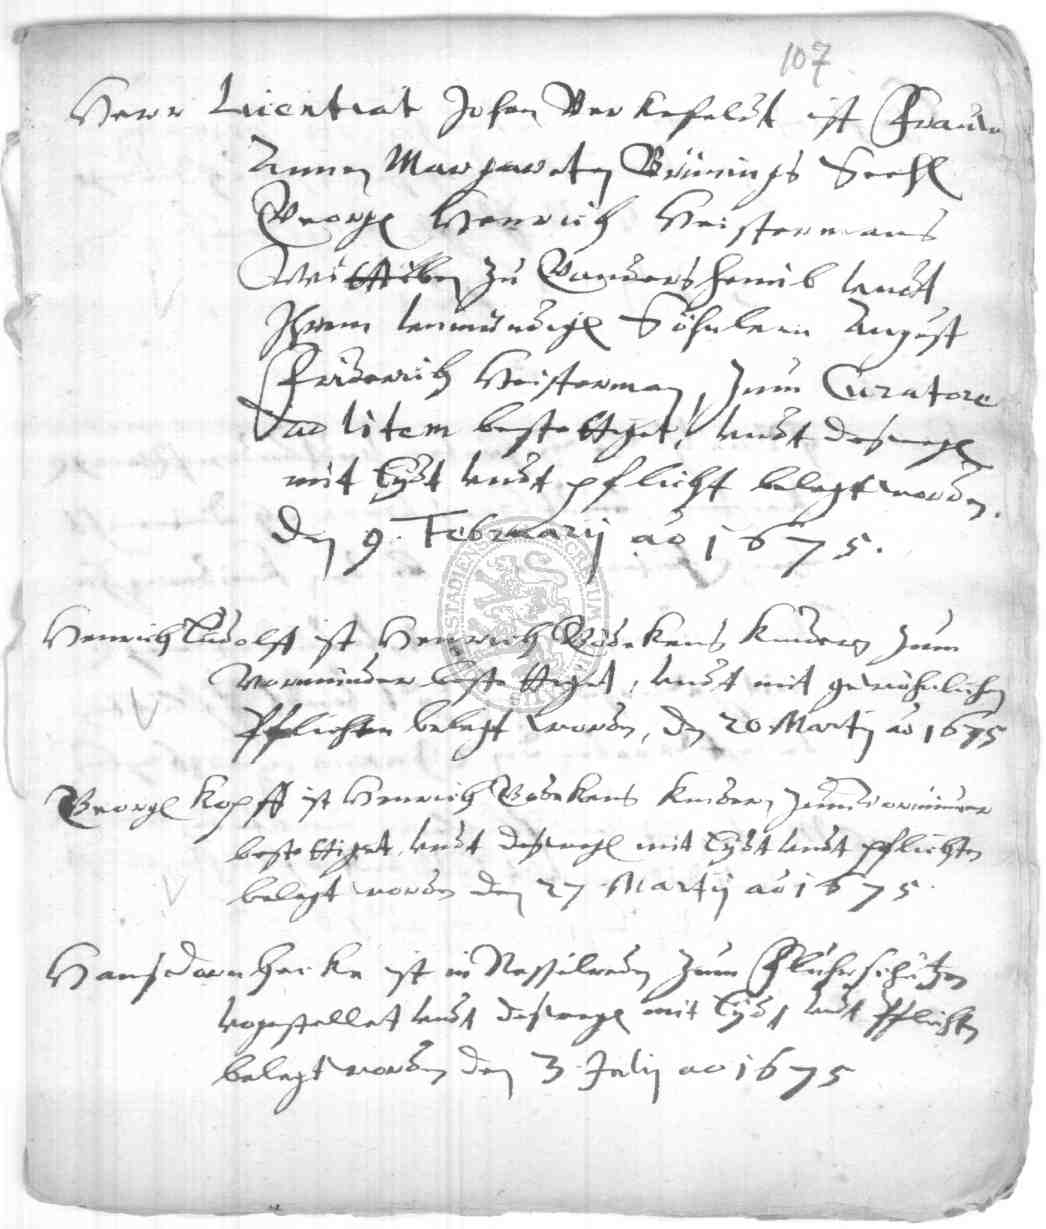 107
Herr Licentiat Johan Berkefeldt ist Frauen
Annen Margareten Brünings Seehl
Georgl Henrich Heistermans
Wittiben zu Gandersheimb undt
Ihrem unmündigl Söhnlein August
Friderich Heisterman, zum Curatore
ad litem bestettiget, undt deswegl
mit Eydt undt pflicht belegt worden.
den 9. Februarij ao 1675.
Henrich Ludolff ist Henrich Kinder zum
Vormünder bestettiget, undt mit gewöhnlichen
Pflichten belegt worden, den 20 Martij ao 1675
Georgl Kopff ist Henrich Kinder, zum vormünder
bestettiget, undt deswegl mit Eydt undt pflichten
belegt worden den 27 Martij ao 1675.
Hans Dornheicke ist in zum Fluhrschützen
vorgestellet undt deswegl mit Eydt undt Pflichten
belegt worden den 3 Julij ao 1675